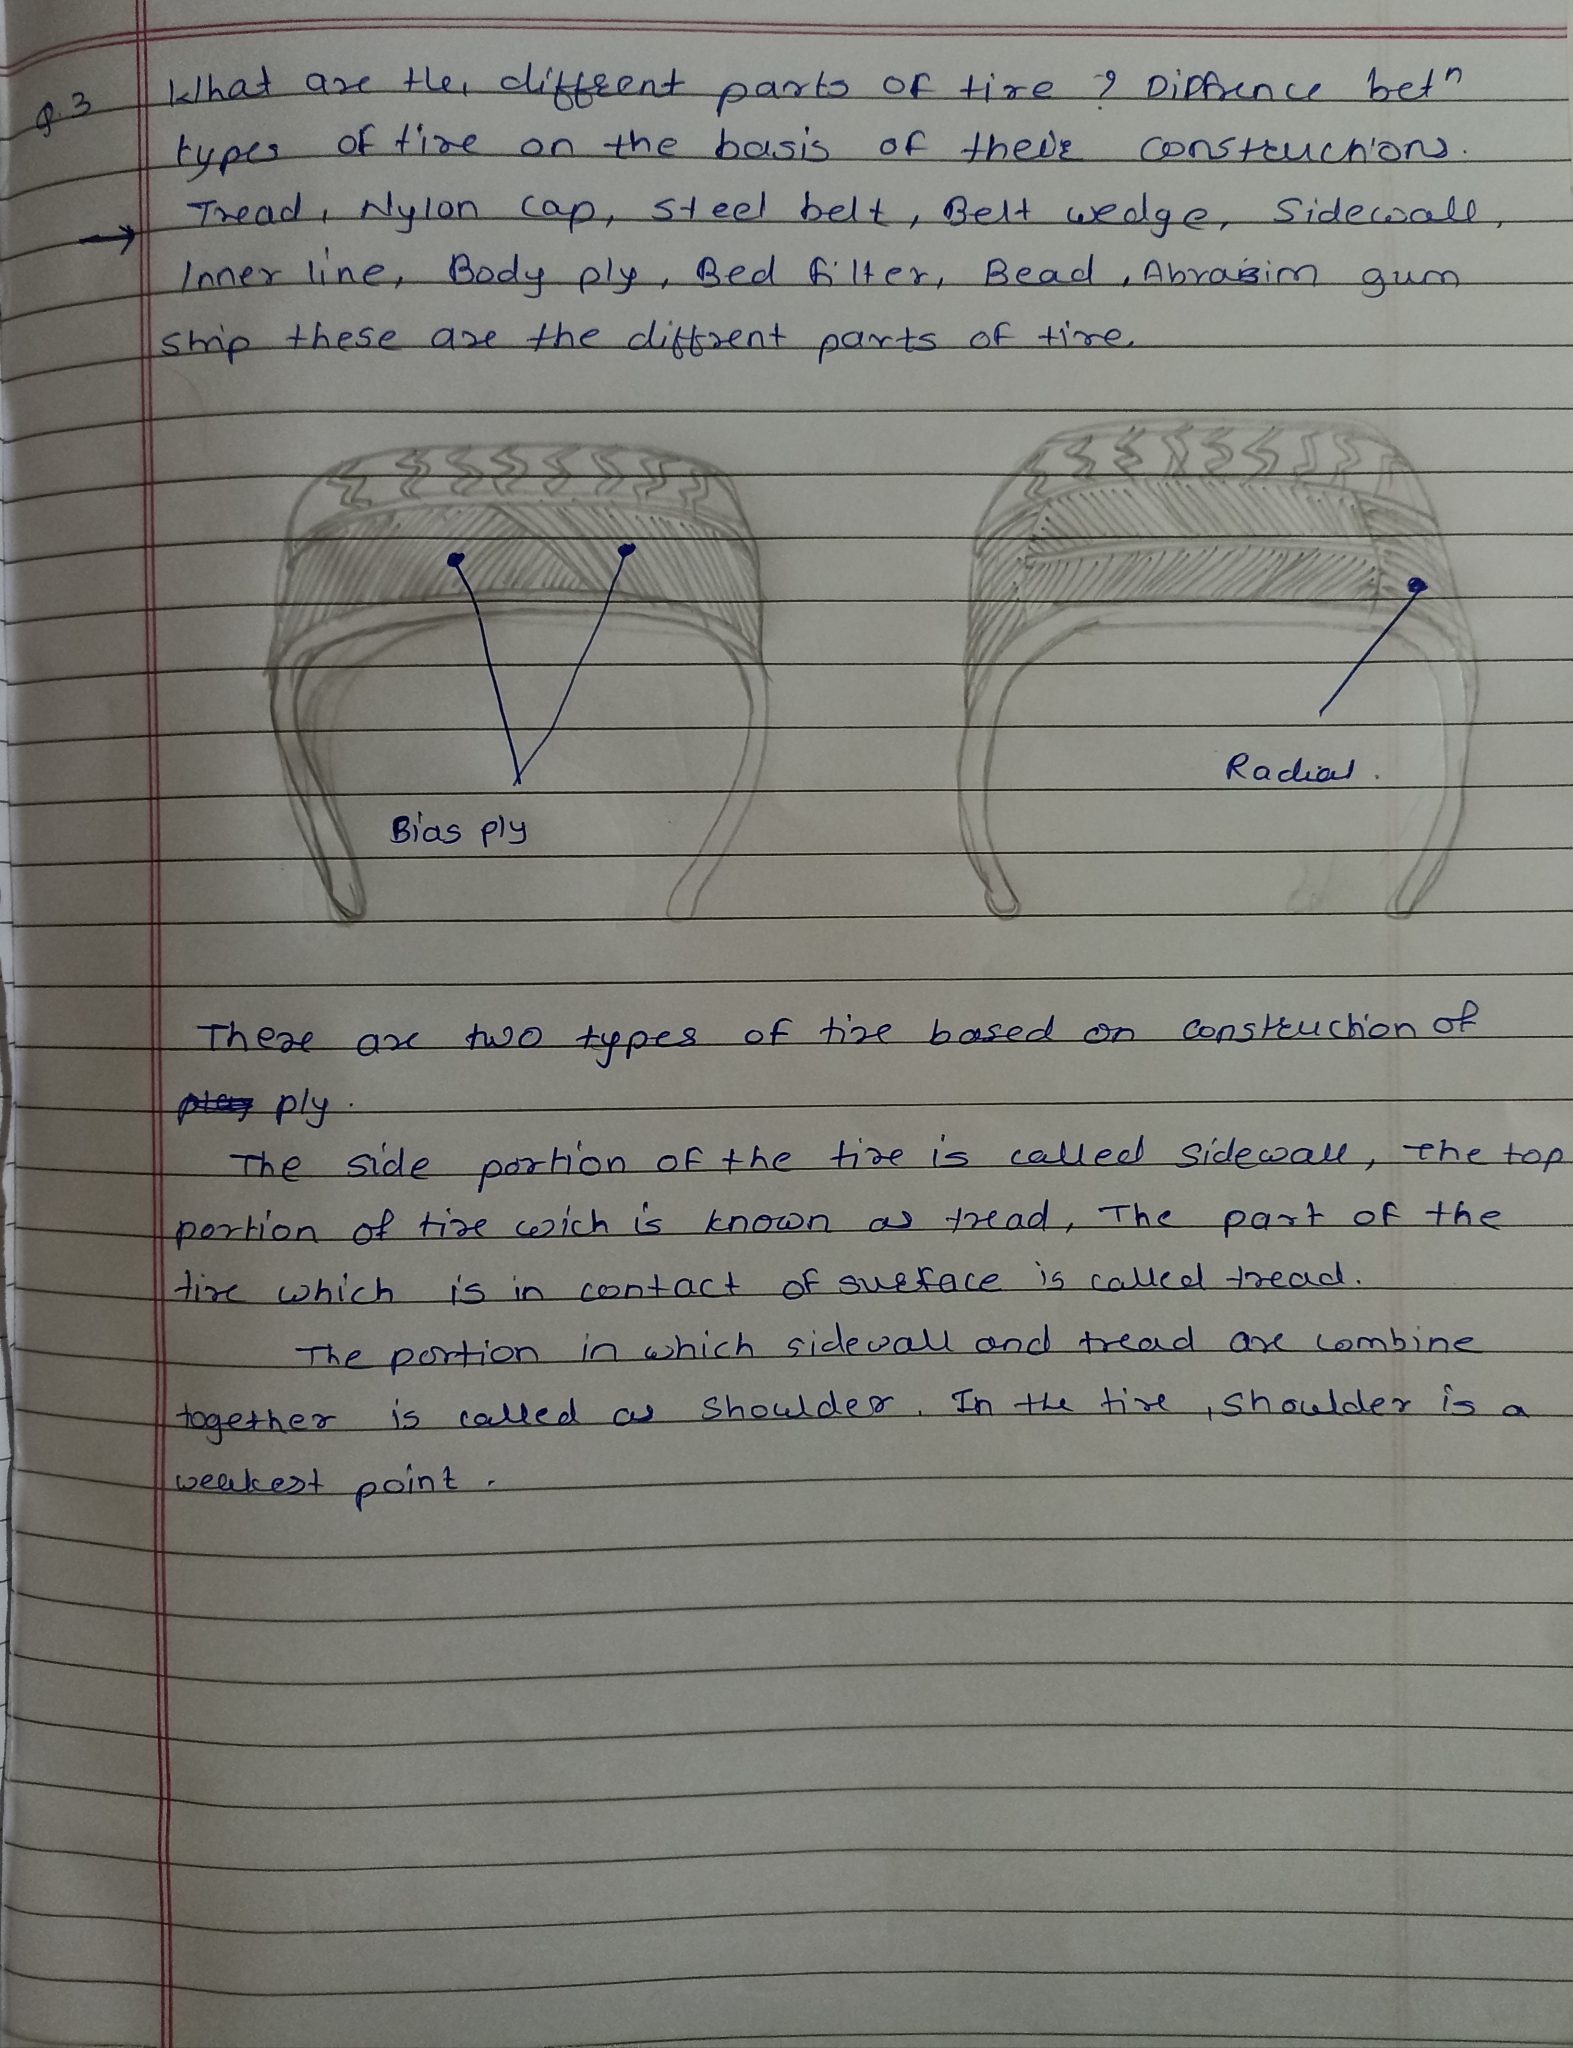 Q.3 What are the, diffrent parts of tire ? Diffrence betn
types of tire on the basis of their constructions.
→ Tread, Nylon cap, steel belt, Belt wedge, Sidewall,
Inner line, Body ply, Bed filter, Bead, Abrasim gum
strip these are the diffrent parts of tire.
Bias ply
Radial.
There are two types of tire based on construction of
ply.
The side portion of the tire is called sidewall, the top
portion of tire wich is known as tread, The part of the
tire which is in contact of surface is called tread.
The portion in which sidewall and tread are combine
together is called as shoulder. In the tire, shoulder is a
weakest point.